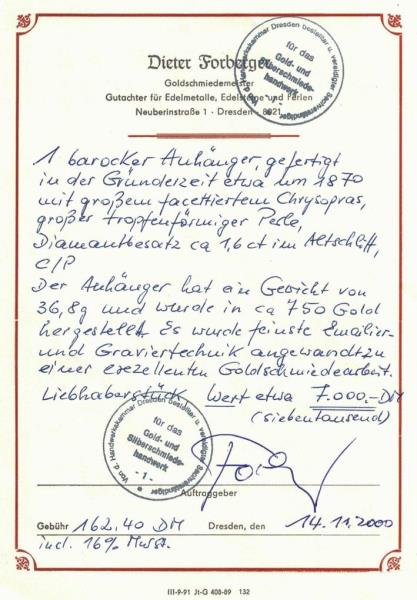 Dieter Forberger
Goldschmiedemeister
Gutachter für Edelmetalle, Edelsteine und Perlen
Neuberinstraße 1 · Dresden · 8021
Von d. Handwerkskammer Dresden bestellter u. vereidigter Sachverständiger
für das
Gold- und
Silberschmiede-
handwerk
- 1 -
1 barocker Anhänger, gefertigt
in der Gründerzeit etwa um 1870
mit großem facettiertem Chrysopras,
großer tropfenförmiger Perle,
Diamantbesatz ca 1,6 ct im Altschliff,
C/P
Der Anhänger hat ein Gewicht von
36,8g und wurde in ca 750 Gold
hergestellt. Es wurde feinste Emailier-
und Graviertechnik angewandt zu
einer exzellenten Goldschmiedearbeit.
Liebhaberstück Wert etwa 7.000.-DM
(siebentausend)
Von d. Handwerkskammer Dresden bestellter u. vereidigter Sachverständiger
für das
Gold- und
Silberschmiede-
handwerk
- 1 -
Auftraggeber
Gebühr 162,40 DM Dresden, den 14.11.2000
incl. 16% Mwst.
III-9-91 Jt-G 408-89 132